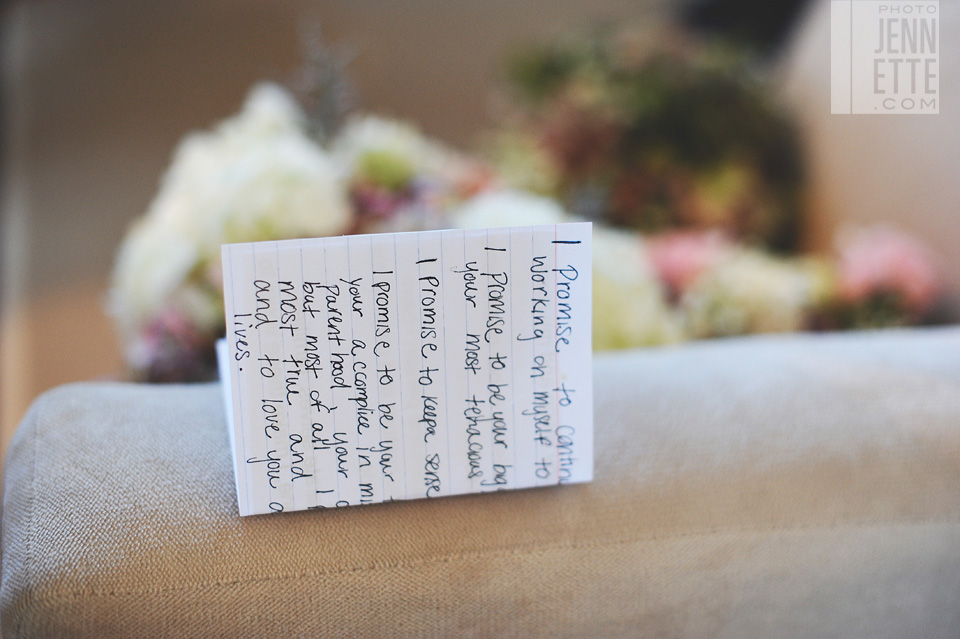 I promise to contin
working on myself to
I promise to be your big
your most tenacious
I promise to keep a sense
I promise to be your
your accomplice in mi
parenthood, your
but most of all I
most true and
and to love you a
lives.
PHOTO
JENN
ETTE
.COM